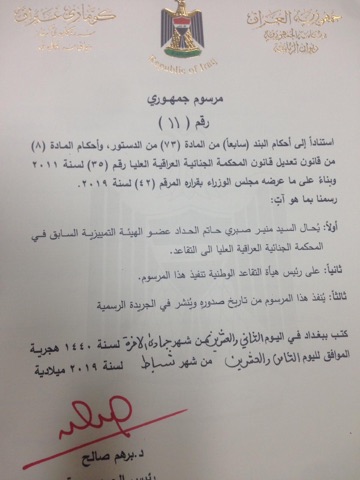 جمهورية العراق
رئاسة الجمهورية
ديوان الرئاسة
Republic of Iraq
مرسوم جمهوري
رقم (١١)
استناداً إلى أحكام البند (سابعاً) من المادة (٧٣) من الدستور، وأحكام المادة (٨)
من قانون تعديل قانون المحكمة الجنائية العراقية العليا رقم (٣٥) لسنة ٢٠١١
وبناءً على ما عرضه مجلس الوزراء بقراره المرقم (٤٢) لسنة ٢٠١٩.
رسمنا بما هو آتٍ:
أولاً: يُحال السيد منير صبري حاتم الحداد عضو الهيئة التمييزية السابق في
المحكمة الجنائية العراقية العليا الى التقاعد.
ثانياً: على رئيس هيأة التقاعد الوطنية تنفيذ هذا المرسوم.
ثالثاً: يُنفذ هذا المرسوم من تاريخ صدوره ويُنشر في الجريدة الرسمية
كتب ببغداد في اليوم الثاني والعشرين من شهر جمادى الآخرة لسنة ١٤٤٠ هجرية
الموافق لليوم الثامن والعشرين من شهر شباط لسنة ٢٠١٩ ميلادية
د.برهم صالح